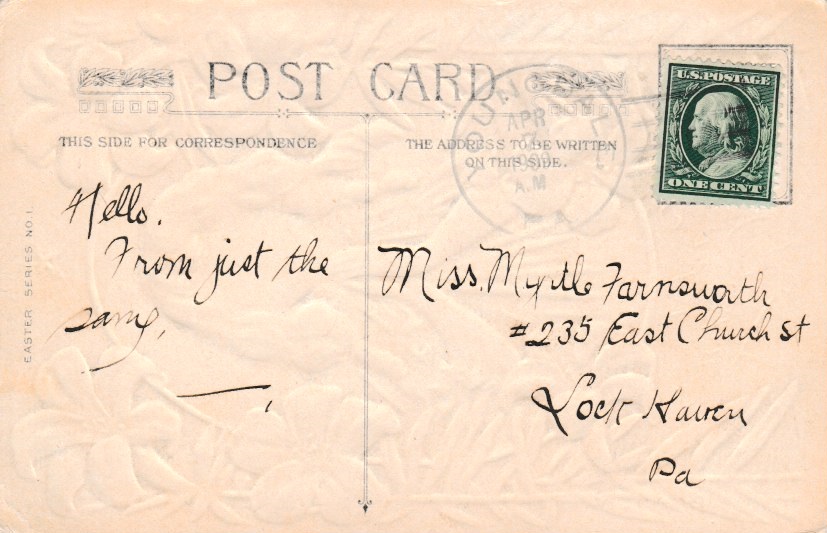 POST CARD
THIS SIDE FOR CORRESPONDENCE
THE ADDRESS TO BE WRITTEN
ON THIS SIDE.
U.S. POSTAGE
ONE CENT
APR
7
A.M
PA
EASTER SERIES NO. 1
Hello.
From just the
same,
Miss. Myrtle Farnsworth
#235 East Church st
Lock Haven
Pa